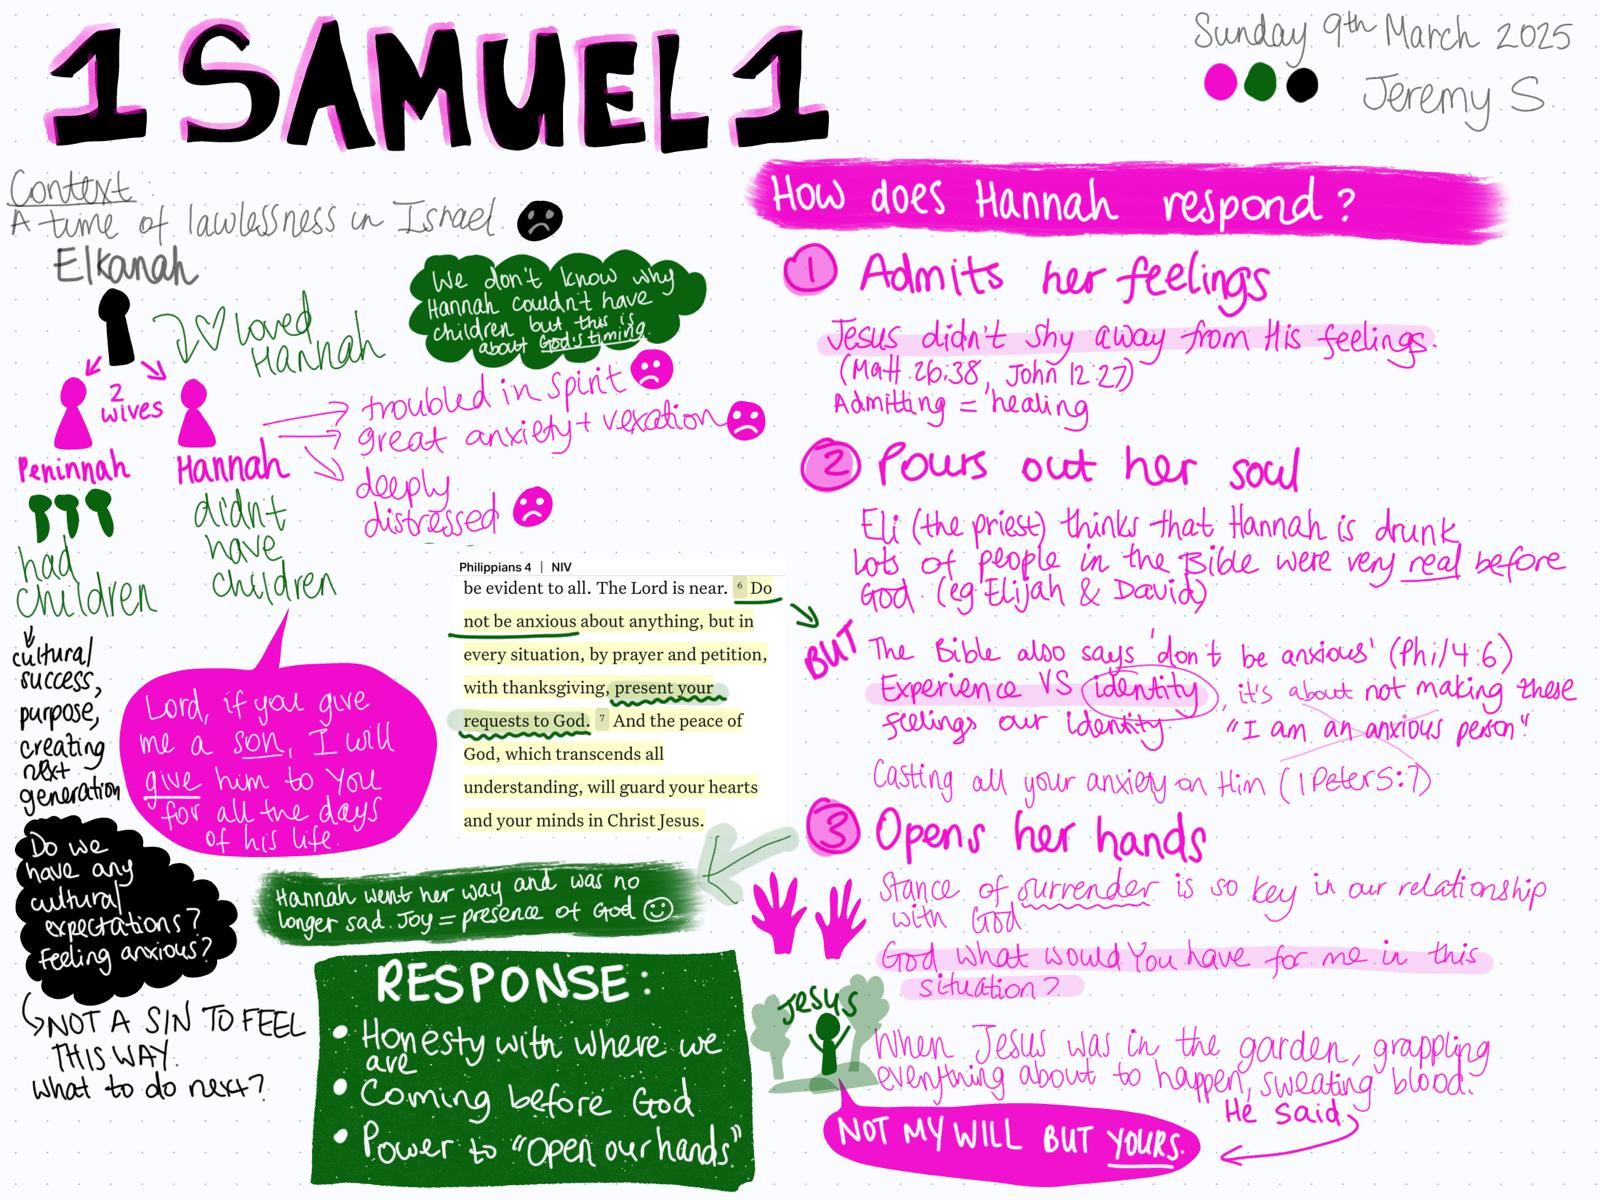 1 SAMUEL 1
Sunday 9th March 2025
Jeremy S
Context
A time of lawlessness in Israel
Elkanah
loved
Hannah
We don't know why
Hannah couldn't have
children but this is
about God's timing.
2
wives
Peninnah
had
children
Hannah
didn't
have
children
troubled in spirit
great anxiety + vexation
deeply
distressed
cultural
success,
purpose,
creating
next
generation
Lord, if you give
me a son, I will
give him to you
for all the days
of his life.
Do we
have any
cultural
expectations?
Feeling anxious?
NOT A SIN TO FEEL
THIS WAY.
What to do next?
Philippians 4 | NIV
be evident to all. The Lord is near. 6 Do
not be anxious about anything, but in
every situation, by prayer and petition,
with thanksgiving, present your
requests to God. 7 And the peace of
God, which transcends all
understanding, will guard your hearts
and your minds in Christ Jesus.
Hannah went her way and was no
longer sad. Joy = presence of God
RESPONSE:
• Honesty with where we
are
• Coming before God
• Power to "Open our hands"
How does Hannah respond?
1 Admits her feelings
Jesus didn't shy away from His feelings.
(Matt 26:38, John 12:27)
Admitting = healing
2 Pours out her soul
Eli (the priest) thinks that Hannah is drunk
Lots of people in the Bible were very real before
God. (eg Elijah & David)
BUT
The Bible also says 'don't be anxious' (Phil 4:6)
Experience VS identity, it's about not making these
feelings our identity "I am an anxious person"
Casting all your anxiety on Him (1 Peter 5:7)
3 Opens her hands
Stance of surrender is so key in our relationship
with God
God what would You have for me in this
situation?
Jesus
When Jesus was in the garden, grappling
everything about to happen, sweating blood.
He said
NOT MY WILL BUT YOURS.